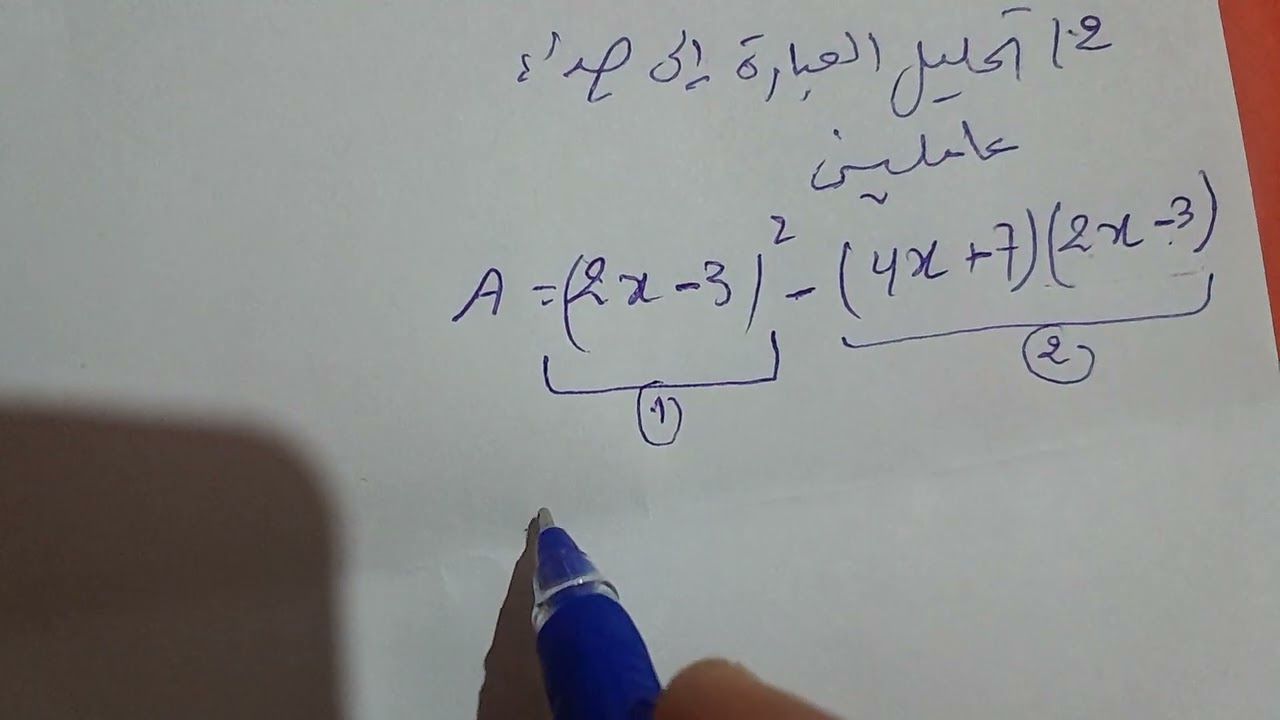 2.) تحليل العبارة إلى جداء
عاملين
A = (2x - 3)² - (4x + 7)(2x - 3)
① ②